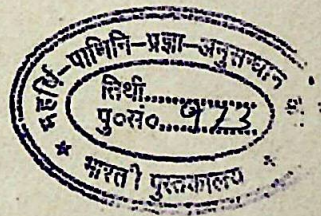 महर्षि-पाणिनि-प्रज्ञा-अनुसन्धान
तिथी............
पु०सं०..973......
* भारती पुस्तकालय *